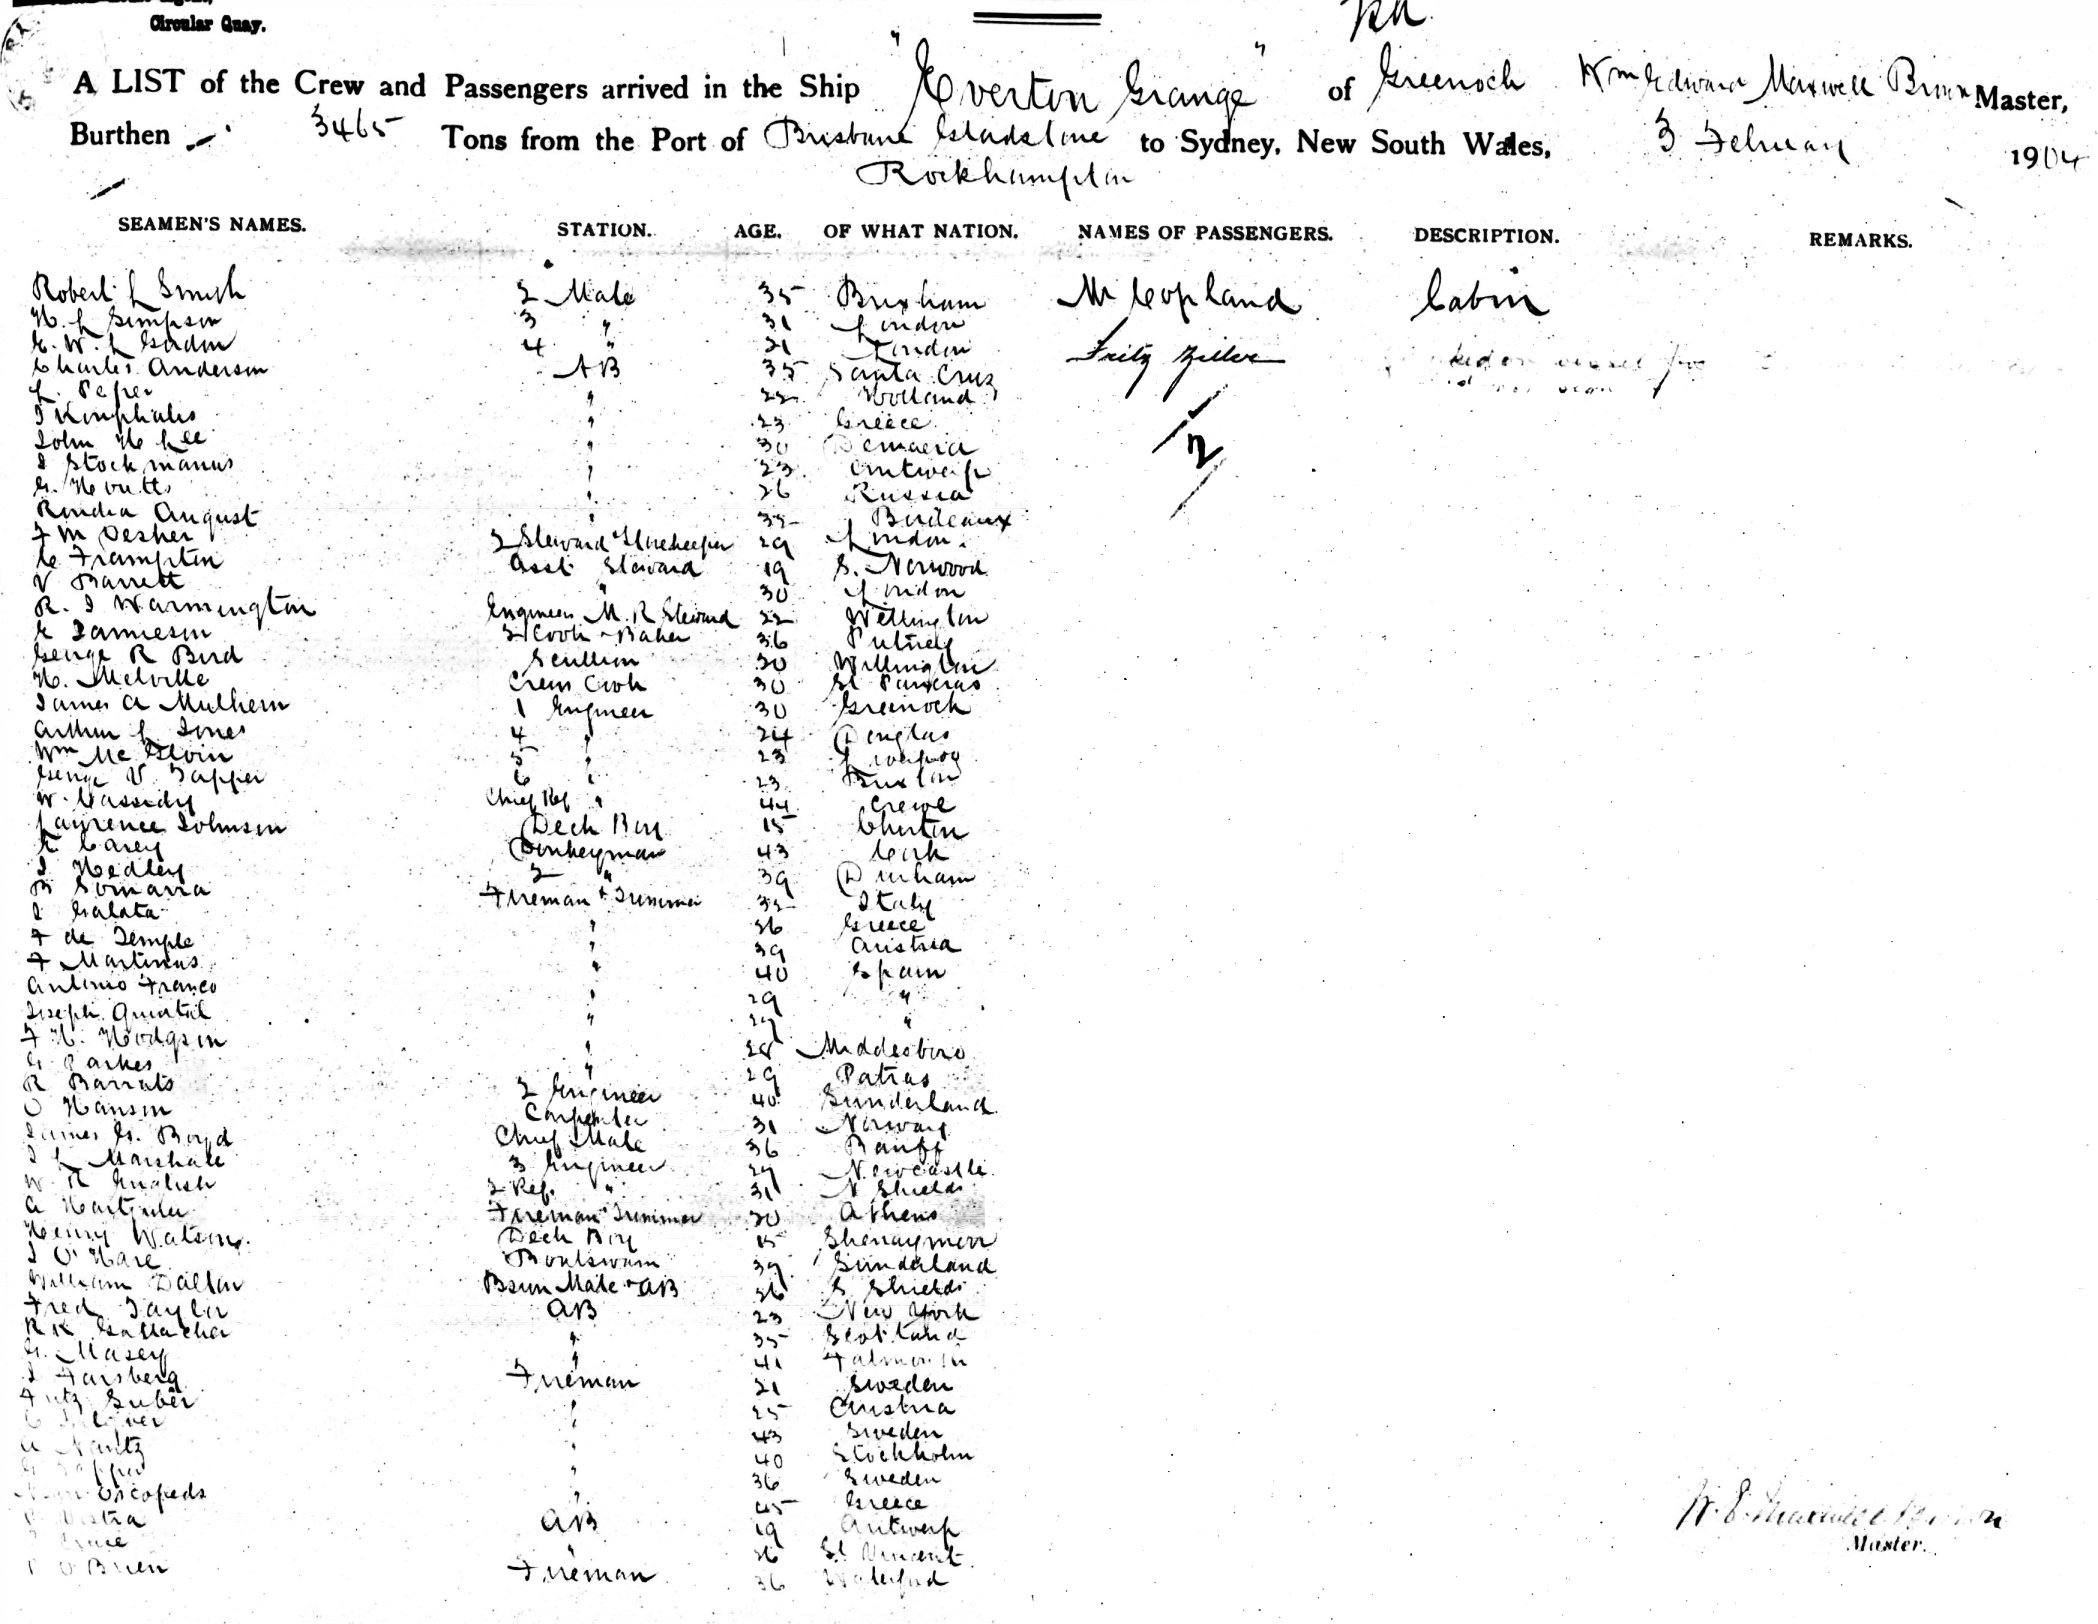 Circular Quay.
A LIST of the Crew and Passengers arrived in the Ship "Everton Grange" of Greenock Wm Edward Maxwell Brown Master,
Burthen 3465 Tons from the Port of Brisbane Gladstone to Sydney, New South Wales, 3 February 1904
Rockhampton
SEAMEN'S NAMES. STATION. AGE. OF WHAT NATION. NAMES OF PASSENGERS. DESCRIPTION. REMARKS.
Robert L Smyth 2 Mate 35 Brixham Mr Copland Cabin
H. L Simpson 3 " 31 London
E. W. L Gordon 4 " 21 London Fritz
Charles Anderson AB 35 Santa Cruz
L. Peper " 22 Holland
" 23 Greece
John H Lee " 30
J Stockmanus " 23 Antwerp
G. " 26 Russia
August " 32 Bordeaux
F M Desher 2 Steward & Storekeeper 29 London
C Frampton Asst Steward 19 S. Norwood
V Barrett " 30 London
R. J Warmington Engineers M. R Steward 22 Wellington
E Jamieson 2 Cook & Baker 36 Putney
George R Bird Scullion 20 Wellington
H. Melville Crews Cook 30 St Pancras
James A Mulhern 1 Engineer 30 Greenock
Arthur L Jones 4 " 24 Douglas
Wm Mc Elvin 5 " 23 Liverpool
George V. Tapper 6 " 23
W. Cassidy Chief Ref " 44 Crewe
Laurence Johnson Deck Boy 15
E Carey Donkeyman 43 Cork
J Hedley 2 " 39 Durham
B Somarra Fireman & Trimmer 32 Italy
J Galata " 26 Greece
F de Temple " 39 Austria
F Martinus " 40 Spain
Antonio Franco " 29 "
Joseph " 29 "
F H. Hodgson " 28 Middesboro
G Parkes " 29 Patras
R Barrats 2 Engineer 40 Sunderland
O Hanson Carpenter 31 Norway
James G. Boyd Chief Mate 36 Banff
J L Marshall 3 Engineer 29 Newcastle
W R English 2 Ref. " 31 N Shields
A Fireman & Trimmer 20 Athens
Henry Watson Deck Boy 15
J O'Hare Boatswain 39 Sunderland
William Dalton Bosun Mate & AB 26 S Shields
Fred Taylor AB 23 New York
R K Gallacher " 35 Scotland
G. Masey " 41 Falmouth
J Farsberg Fireman 21 Sweden
Fritz Guber " 25 Austria
" 43 Sweden
Nantz " 40 Stockholm
" 36 Sweden
" 45 Greece
AB 19 Antwerp
" 26 St Vincent
O'Brien Fireman 36 Waterford
2
W. E. Maxwell Brown
Master.